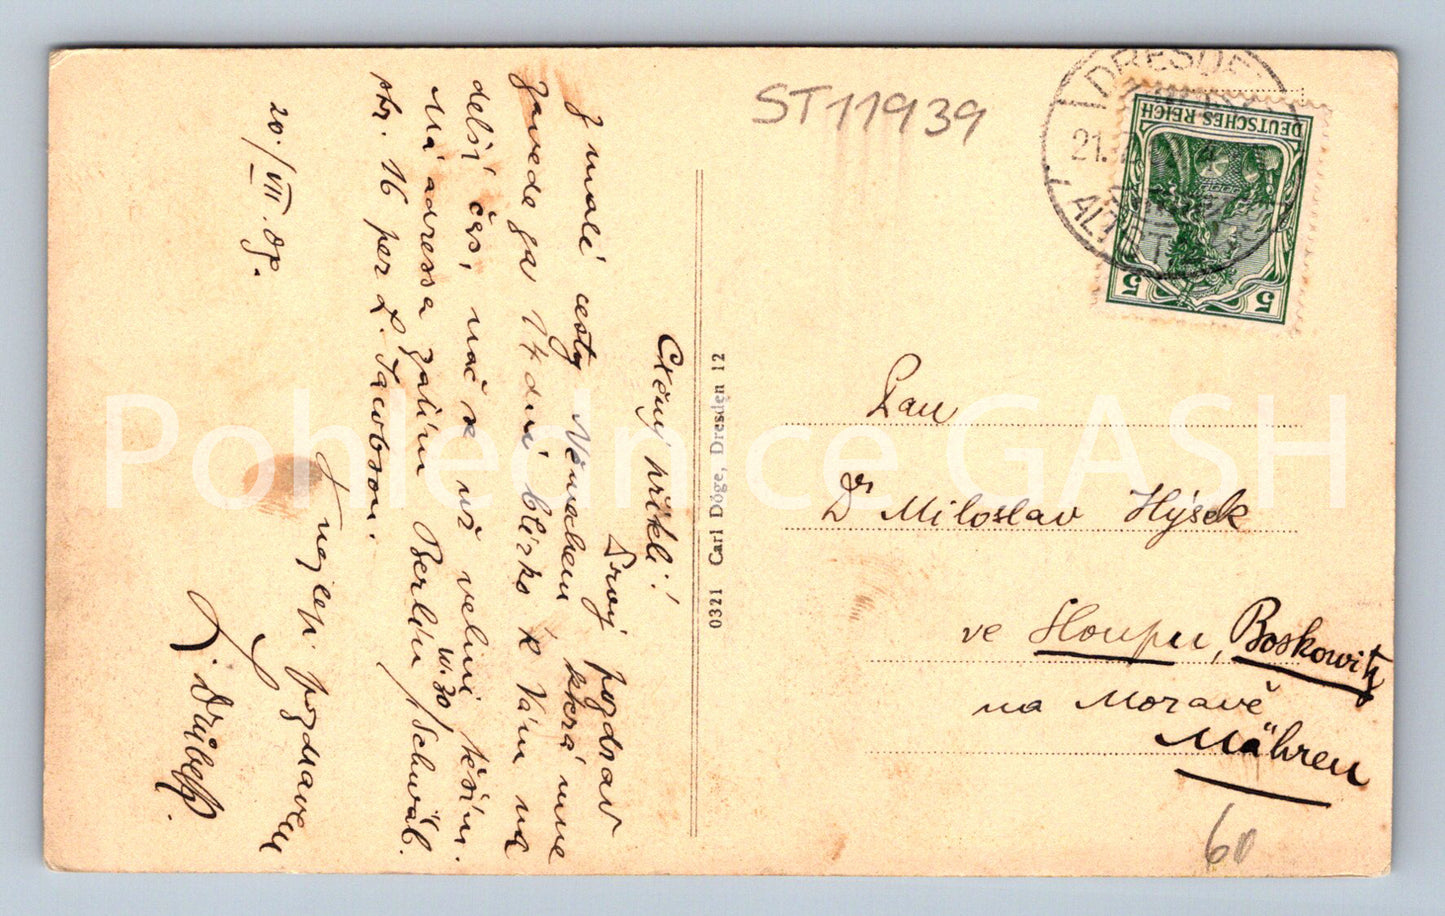 ST11939
DRESDEN
21.
ALTST.
DEUTSCHES REICH
5 5
Ctěný příteli!
Prvý pozdrav
z malé cesty Německem která mne
zavede za 14 dní blízko k Vám na
delší čas, nač se již velmi těším.
Má adressa zatím Berlín W. 30 Schwäb.
str. 16 per L. Jacobson.
S nejlep. pozdravem
20./VII. 09.
0321 Carl Döge, Dresden 12
Pan
Dr Miloslav Hýsek
ve Sloupu, Boskowitz
na Moravě
Mähren
60
Pohlednice GASH